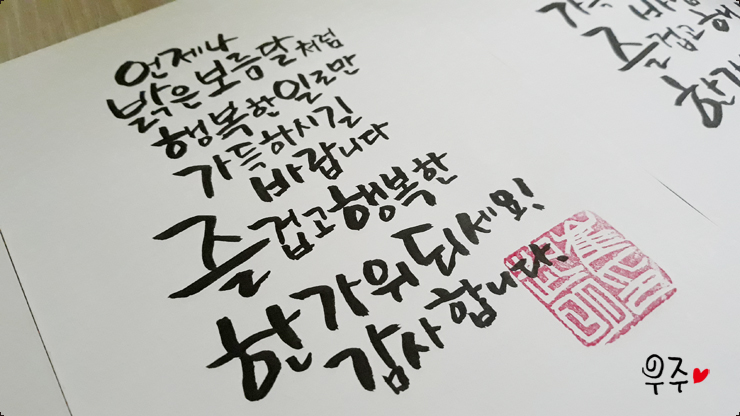 언제나
밝은 보름달처럼
행복한 일로만
가득하시길
바랍니다
즐겁고 행복한
한가위 되세요!
감사합니다.
가득
바랍
즐겁고 행
한가
우주